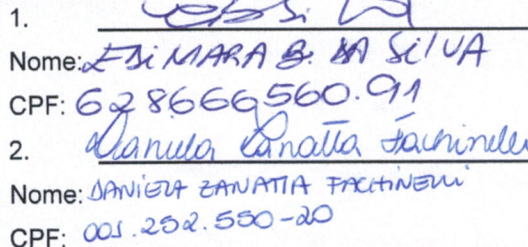 1.
Nome: EDIMARA B. DA SILVA
CPF: 628666560.91
2. Daniela Zanatta Fachinelli
Nome: DANIELA ZANATTA FACHINELLI
CPF: 001.252.550-20